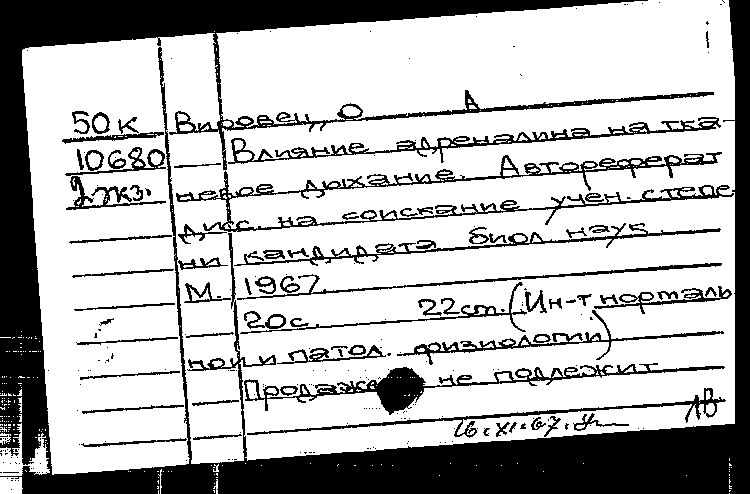 50к Вировец, О А
10680 Влияние адреналина на тка-
2 экз. невое дыхание. Автореферат
дисс. на соискание учен. степе-
ни кандидата биол. наук.
М. 1967.
20с. 22ст. (Ин-т нормаль
ной и патол. физиологии)
Продаже не подлежит
16.XI.67.
1В